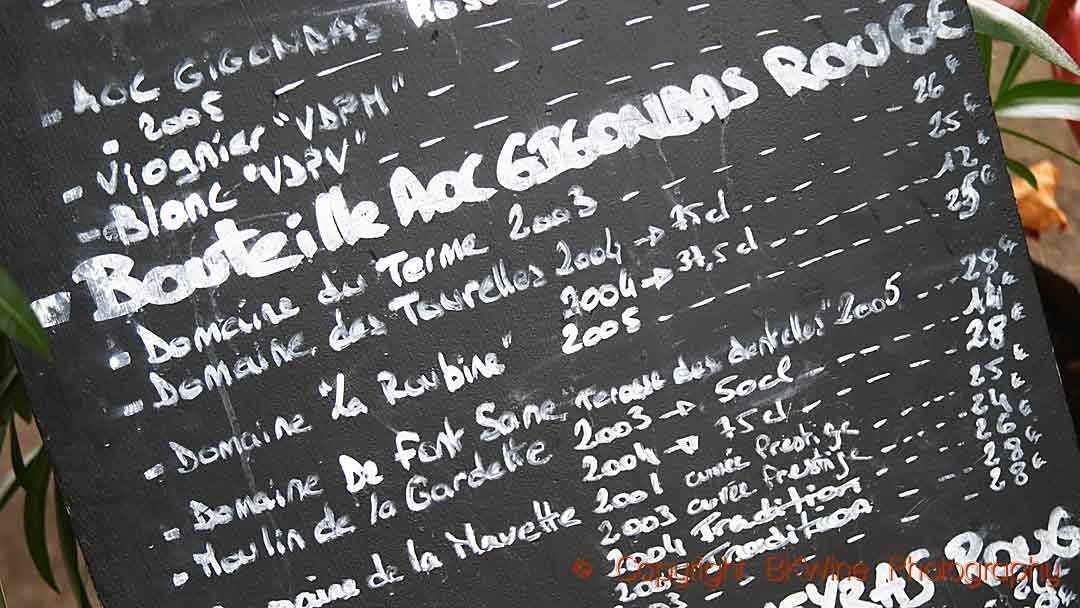 - AOC GIGONDAS Rosé
• 2005
- Viognier "VDPM"
- Blanc "VDPV"
- Bouteille AOC GIGONDAS ROUGE
- Domaine du Terme 2003 26€
- Domaine des Tourelles 2004 → 75 cl 25€
2004 → 37,5 cl 12€
- Domaine "La Roubine" 2005 25€
- Domaine De Font Sane "Terasse des dentelles" 2005 28€
- Moulin de la Gardette 2003 → 50cl 14€
2004 → 75 cl 28€
de la Mavette 2001 cuvée Prestige 25€
2003 cuvée Prestige 24€
2004 Tradition 26€
Tradition 28€
28€
ROUG
Copyright BKWine Photography